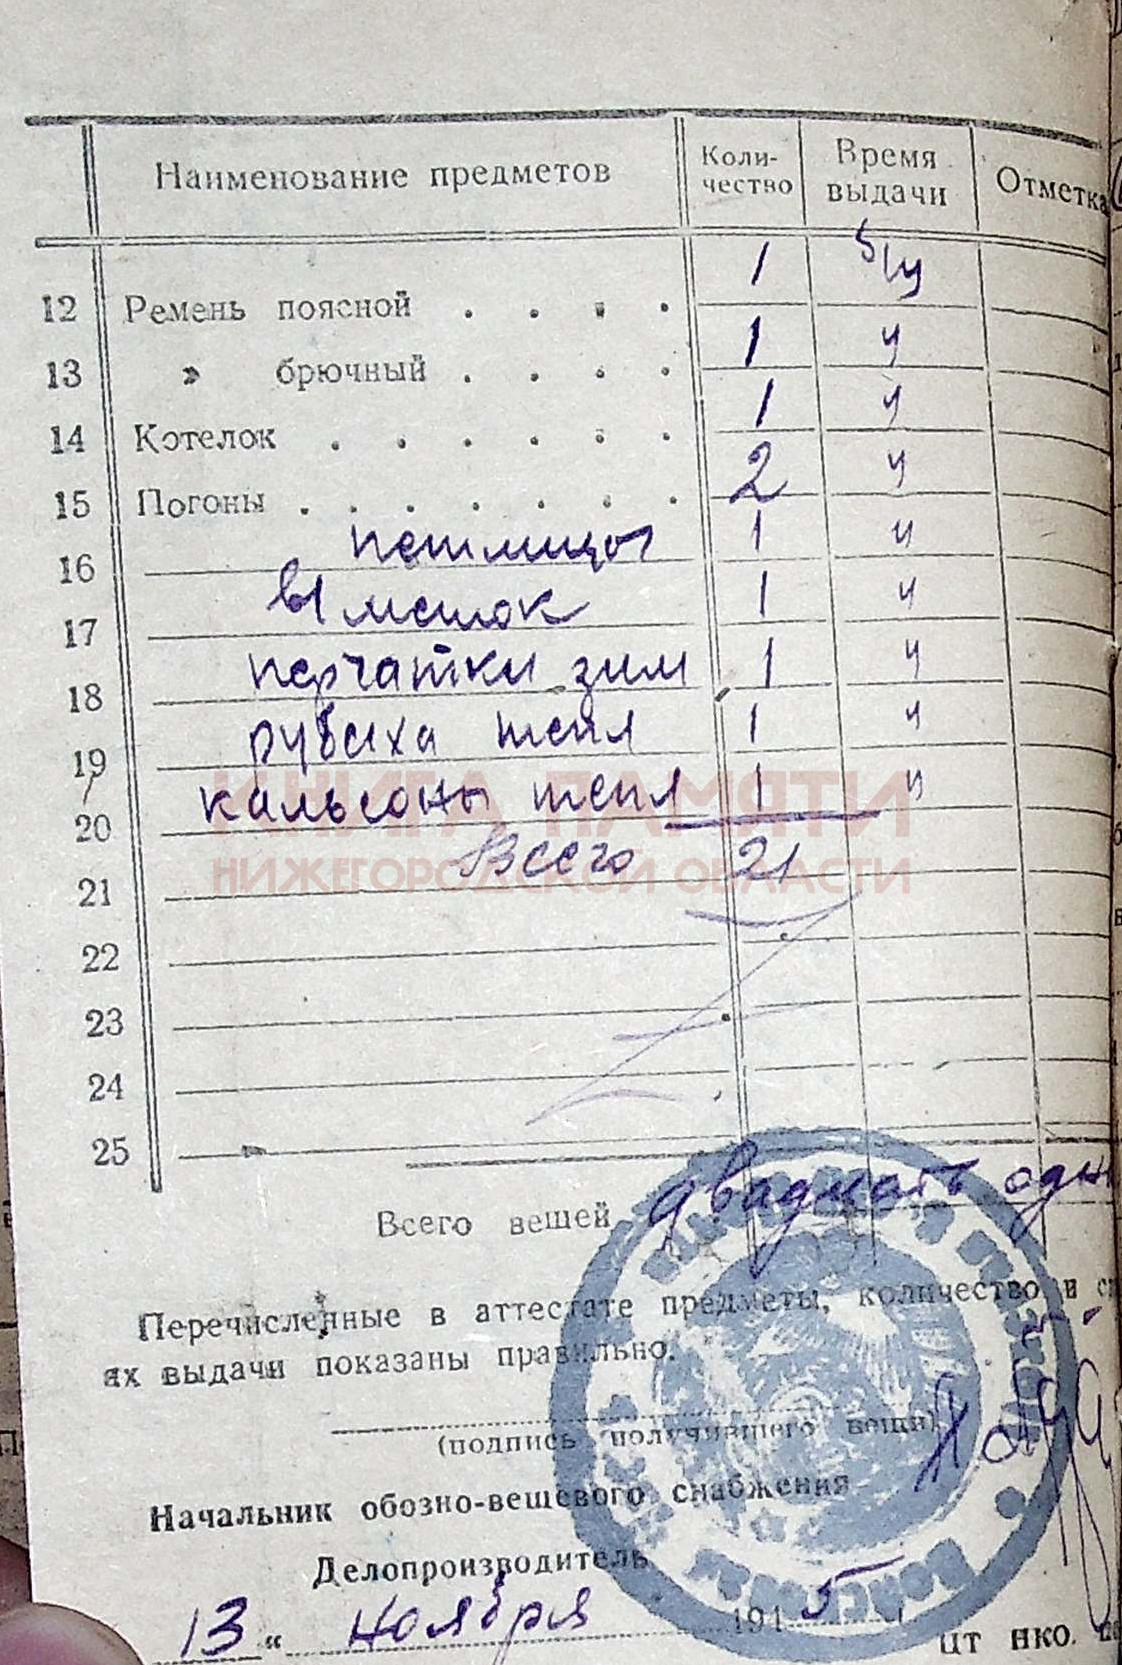 Наименование предметов Коли-чество Время выдачи Отметка
12 Ремень поясной . . . . 1 б/у
13 » брючный . . . . 1 "
14 Котелок . . . . . . 1 "
15 Погоны . . . . . . . 2 "
16 петлицы 1 "
17 в/мешок 1 "
18 перчатки зим 1 "
19 рубаха тепл 1 "
20 кальсоны тепл 1 "
КНИГА ПАМЯТИ
21 Всего 21
НИЖЕГОРОДСКОЙ ОБЛАСТИ
22
23
24
25
Всего вещей двадцать одн
Перечисленные в аттестате предметы, количество и с
ях выдачи показаны правильно.
(подпись получившего вещи)
Начальник обозно-вещевого снабжения
Делопроизводитель
13 " ноября 194 5
цт НКО.